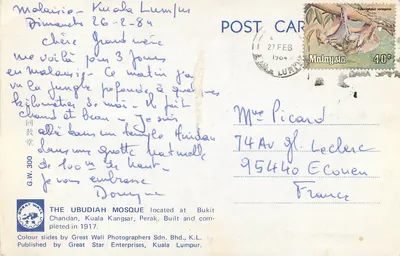 Malaisie - Kuala Lumpur
Dimanche 26-2-84
Chère Grand mère
me voilà pour 3 jours
en Malaisie. Ce matin j'ai
vu la jungle profonde à quelques
kilomètres de moi. Il fait
chaud et beau. Je suis
allé dans un temple Hindou
dans une grotte naturelle
de 100m de haut.
je vous embrasse
POST CARD
27 FEB
1984
KUALA LUMPUR
Malaysia
40¢
Mme Picard
74 Av gl. Leclerc
95440 Ecouen
France
G.W. 300
THE UBUDIAH MOSQUE located at Bukit
Chandan, Kuala Kangsar, Perak. Built and com-
pleted in 1917.
Colour slides by Great Wall Photographers Sdn. Bhd., K.L.
Published by Great Star Enterprises, Kuala Lumpur.